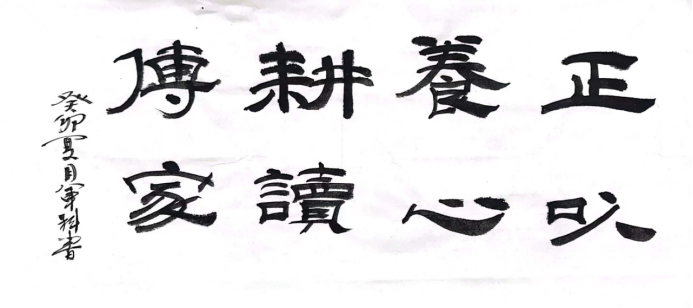 正以
養心
耕讀
傳家
癸卯夏月軍科書